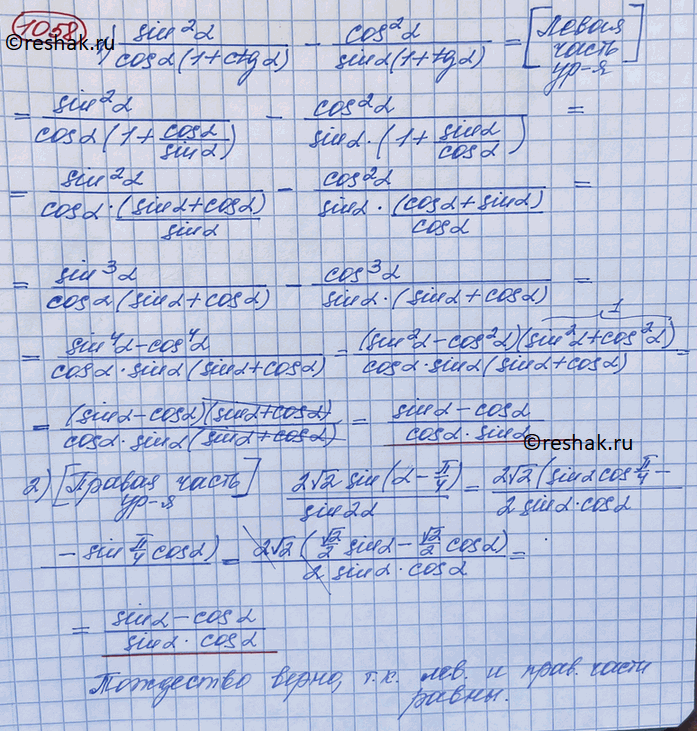 1058
©reshak.ru
1) sin²α / cosα(1+ctgα) − cos²α / sinα(1+tgα) = [Левая часть ур-я]
= sin²α / cosα(1+cosα/sinα) − cos²α / sinα·(1+sinα/cosα) =
= sin²α / cosα·(sinα+cosα)/sinα − cos²α / sinα·(cosα+sinα)/cosα =
= sin³α / cosα(sinα+cosα) − cos³α / sinα·(sinα+cosα) =
1
= sin⁴α−cos⁴α / cosα·sinα(sinα+cosα) = (sin²α−cos²α)(sin²α+cos²α) / cosα·sinα(sinα+cosα) =
= (sinα−cosα)(sinα+cosα) / cosα·sinα(sinα+cosα) = sinα−cosα / cosα·sinα
©reshak.ru
2) [Правая часть ур-я] 2√2 sin(α−π/4) / sin2α = 2√2(sinα cos π/4 − / 2 sinα·cosα
− sin π/4 cosα) = 2√2(√2/2 sinα − √2/2 cosα) / 2 sinα·cosα =
= sinα−cosα / sinα·cosα
Тождество верно, т.к. лев. и прав. части
равны.
©reshak.ru